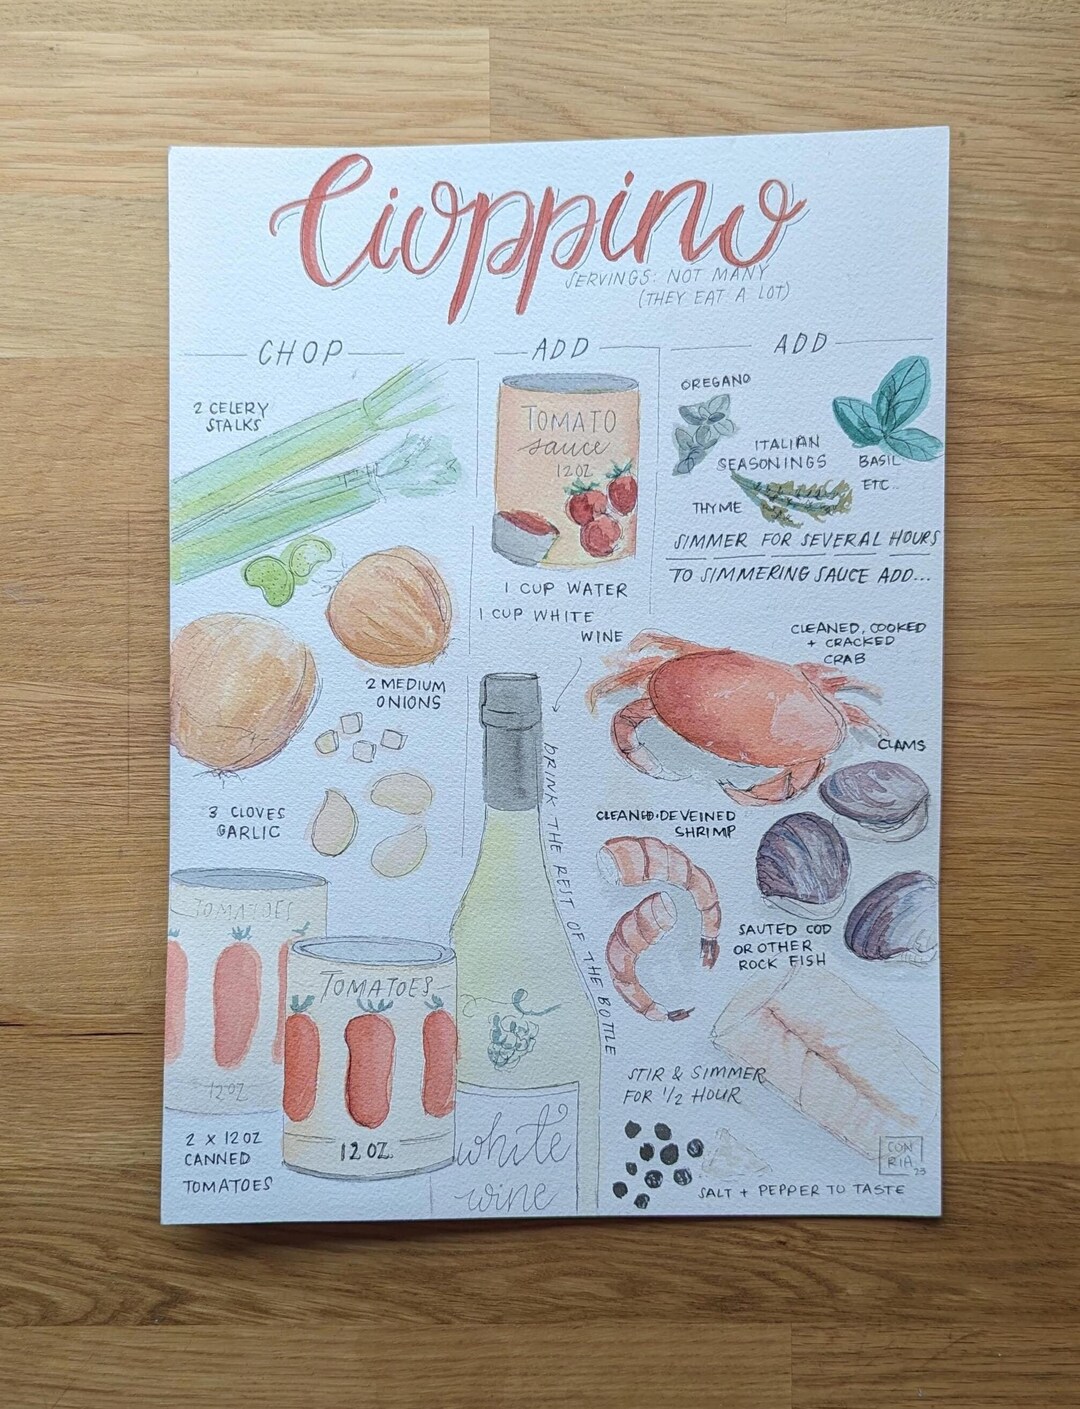 Cioppino
SERVINGS: NOT MANY
(THEY EAT A LOT)
CHOP
2 CELERY
STALKS
2 MEDIUM
ONIONS
3 CLOVES
GARLIC
TOMATOES
12OZ
TOMATOES
12 OZ.
2 X 12OZ
CANNED
TOMATOES
ADD
TOMATO
sauce
12OZ
1 CUP WATER
1 CUP WHITE
WINE
DRINK THE REST OF THE BOTTLE
white
wine
ADD
OREGANO
ITALIAN
SEASONINGS
BASIL
ETC..
THYME
SIMMER FOR SEVERAL HOURS
TO SIMMERING SAUCE ADD...
CLEANED, COOKED
+ CRACKED
CRAB
CLAMS
CLEANED·DEVEINED
SHRIMP
SAUTED COD
OR OTHER
ROCK FISH
STIR & SIMMER
FOR 1/2 HOUR
SALT + PEPPER TO TASTE
CON
RIA
23